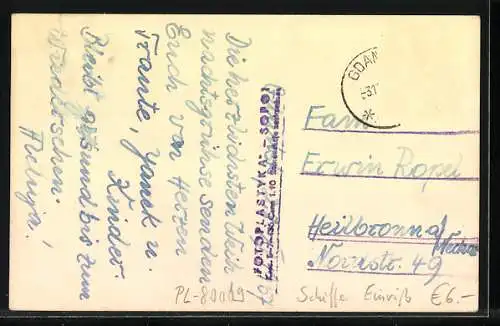 Die herzlichsten Weih
nachtsgrüsse senden
Euch von Herzen
Traute, Janek u.
Kinder.
Bleibt gesund bis zum
Wiedersehen.
FOTOPLASTYKA - SOPOT
GDAŃ
Fam
Erwin Ropel
Heilbronn a/
Neckar
Nordstr. 49
PL-80019
Schiffe Einriß €6.-